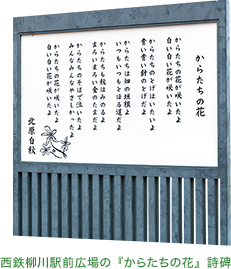 からたちの花
からたちの花が咲いたよ
白い白い花が咲いたよ
からたちのとげはいたいよ
青い青い針のとげだよ
からたちは畑の垣根よ
いつもいつもとほる道だよ
からたちも秋はみのるよ
まろいまろい金のたまだよ
からたちのそばで泣いたよ
みんなみんなやさしかつたよ
からたちの花が咲いたよ
白い白い花が咲いたよ
北原白秋
西鉄柳川駅前広場の『からたちの花』詩碑